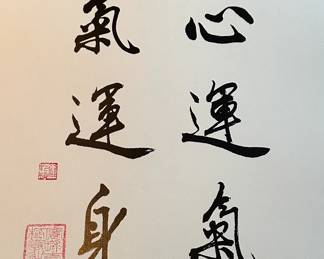 心運氣
氣運身